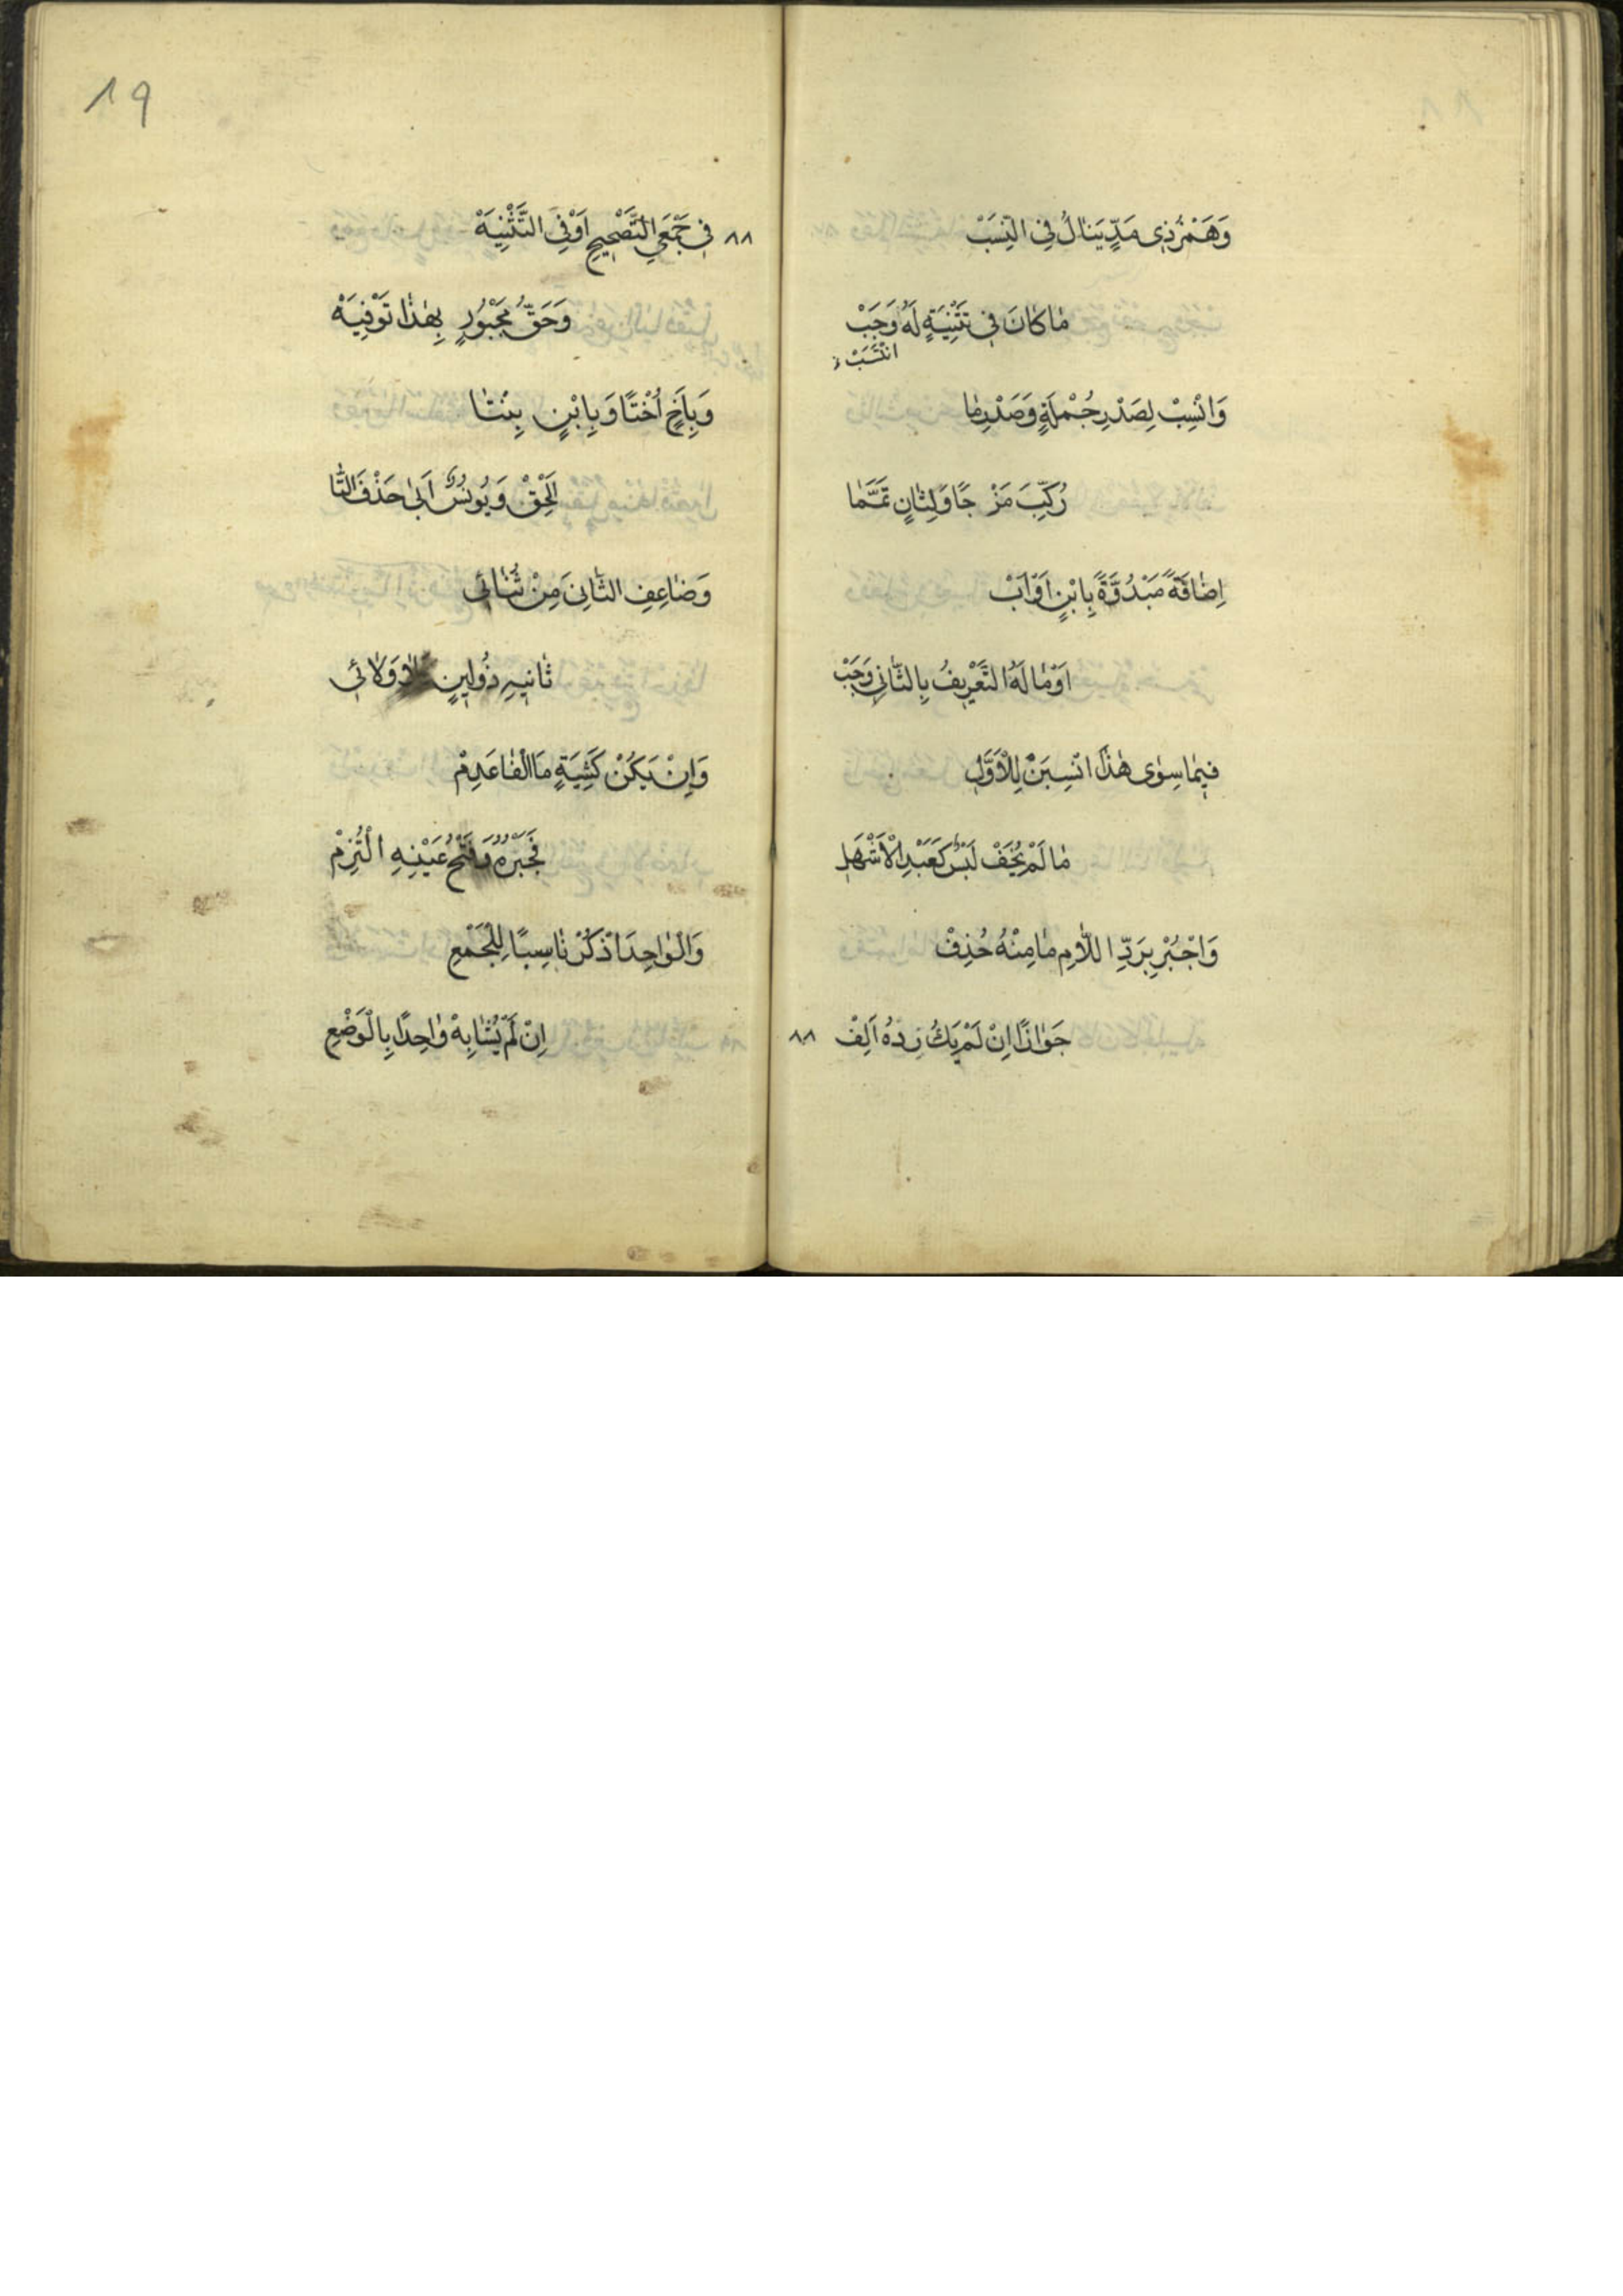 وَهَمْزُ ذِي مَدٍّ يَنَالُ فِي النَّسَبْ
مَا كَانَ فِي تَثْنِيَةٍ لَهُ وَجَبْ
انْتَسَبْ
وَانْسِبْ لِصَدْرِ جُمْلَةٍ وَصَدْرِ مَا
رُكِّبَ مَزْجًا وَلِثَانٍ تَمَّمَا
اِضَافَةً مَبْدُوَّةً بِابْنٍ اَوْ اَبْ
اَوْ مَا لَهُ التَّعْرِيفُ بِالثَّانِي وَجَبْ
فِيمَا سِوَى هٰذَا انْسِبَنْ لِلْاَوَّلِ
مَا لَمْ يُخَفْ لَبْسٌ كَعَبْدِ الْاَشْهَلِ
وَاجْبُرْ بِرَدِّ اللَّامِ مَا مِنْهُ حُذِفْ
جَوَازًا اِنْ لَمْ يَكُ رَدُّهُ اَلِفْ
٨٨
١٩
٨٨ فِي جَمْعَيِ التَّصْحِيحِ اَوْ فِي التَّثْنِيَهْ
وَحَقُّ مَجْبُورٍ بِهٰذَا تَوْفِيَهْ
وَبِاَخٍ اُخْتًا وَبِابْنٍ بِنْتَا
اَلْحِقْ وَيُونُسُ اَبَى حَذْفَ التَّا
وَضَاعِفِ الثَّانِيَ مِنْ ثُنَائِي
ثَانِيهِ ذُو لِينٍ كَلَا وَلَائِي
وَاِنْ يَكُنْ كَشِيَةٍ مَا الْفَا عَدِمْ
فَجَبْرُهُ وَفَتْحُ عَيْنِهِ الْتُزِمْ
وَالْوَاحِدَ اذْكُرْ نَاسِبًا لِلْجَمْعِ
اِنْ لَمْ يُشَابِهْ وَاحِدًا بِالْوَضْعِ